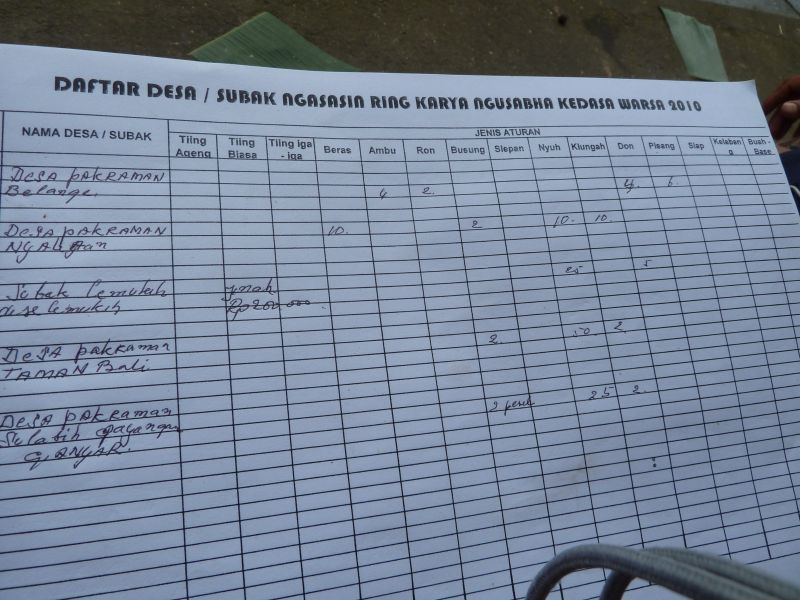 DAFTAR DESA / SUBAK NGASASIN RING KARYA NGUSABHA KEDASA WARSA 2010
NAMA DESA / SUBAK
JENIS ATURAN
Tiing Ageng
Tiing Biasa
Tiing iga - iga
Beras
Ambu
Ron
Busung
Slepan
Nyuh
Klungah
Don
Pisang
Siap
Kelabang
Buah - Base
DESA PAKRAMAN
Belange.
4 2. 4 6.
DESA PAKRAMAN
10. 2 10. 10.
Subak Lemukih
25 5
dese lemukih
Rp 200.000.
DESA Pakraman
2. 50 2.
TAMAN Bali
DESA PAKRAMAN
2 25 2.
Sulatih
GIANYAR.